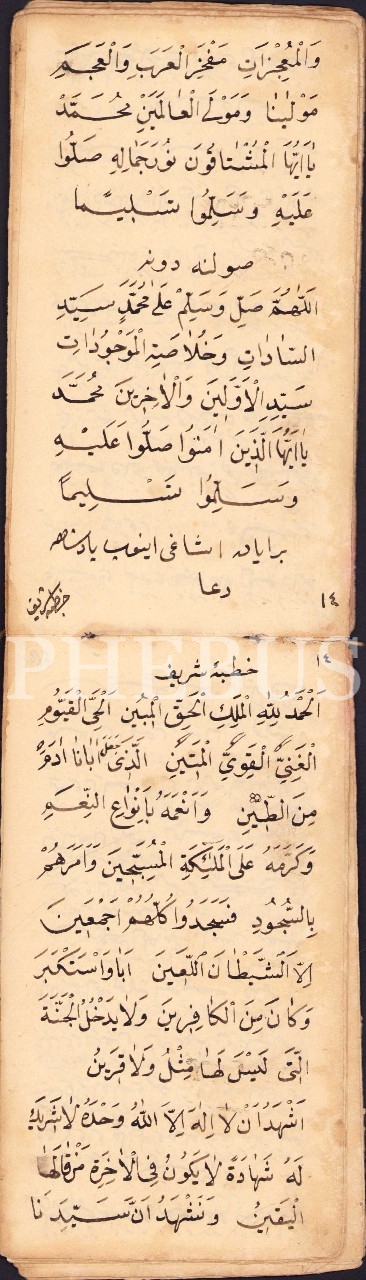 وَالْمُعْجِزَاتِ مَفْخَرِ الْعَرَبِ وَالْعَجَمِ
مَوْلٰينَا وَمَوْلَى الْعَالَمِينَ مُحَمَّدْ
يَا اَيُّهَا الْمُشْتَاقُونَ بِنُورِ جَمَالِهِ صَلُّوا
عَلَيْهِ وَسَلِّمُوا تَسْلِيمًا
صولنه دونه
اَللّٰهُمَّ صَلِّ وَسَلِّمْ عَلٰى مُحَمَّدٍ سَيِّدِ
السَّادَاتِ وَخُلَاصَةِ الْمَوْجُودَاتِ
سَيِّدِ الْاَوَّلِينَ وَالْاٰخِرِينَ مُحَمَّدَ
يَا اَيُّهَا الَّذِينَ اٰمَنُوا صَلُّوا عَلَيْهِ
وَسَلِّمُوا تَسْلِيمًا
اينوب پادشاهه
دعا
١٤
PHEBUS
١٤
خطبۀ شريف
اَلْحَمْدُ لِلّٰهِ الْمَلِكِ الْحَقِّ الْمُبِينِ اَلْحَىِّ الْقَيُّومِ
الْغَنِىِّ الْقَوِىِّ الْمَتِينِ الَّذِى خَلَقَ اَبَانَا اٰدَمَ
مِنَ الطِّينِ وَاَنْعَمَهُ بِاَنْوَاعِ النِّعَمِ
وَكَرَّمَهُ عَلَى الْمَلٰئِكَةِ الْمُسَبِّحِينَ وَاَمَرَهُمْ
بِالسُّجُودِ فَسَجَدُوا كُلُّهُمْ اَجْمَعِينَ
اِلَّا الشَّيْطَانَ اللَّعِينَ اَبَا وَاسْتَكْبَرَ
وَكَانَ مِنَ الْكَافِرِينَ وَلَا يَدْخُلُ الْجَنَّةَ
الَّتِى لَيْسَ لَهَا مِثْلُ وَلَا قَرِينُ
اَشْهَدُ اَنْ لَا اِلٰهَ اِلَّا اللّٰهُ وَحْدَهُ لَا شَرِيكَ
لَهُ شَهَادَةً لَا يَكُونُ فِى الْاٰخِرَةِ مَنْ قَالَهَا
الْيَقِينُ وَنَشْهَدُ اَنَّ سَيِّدَنَا